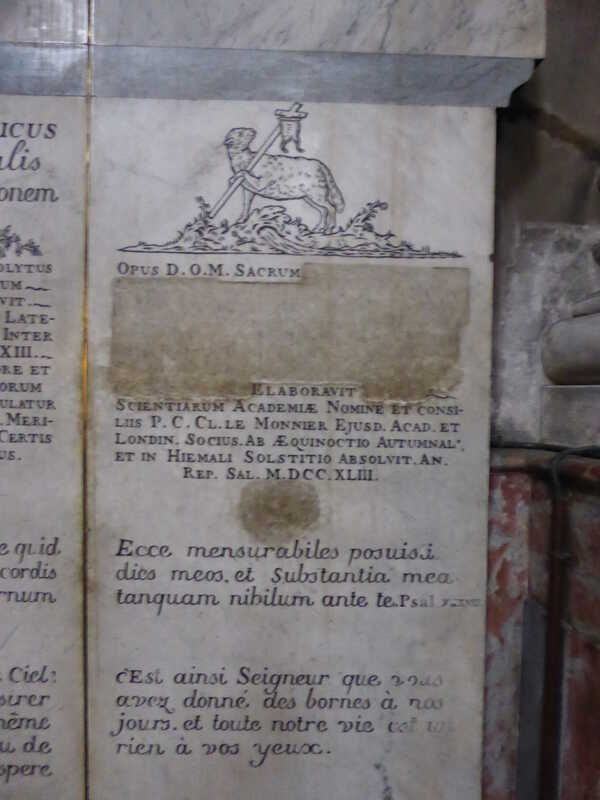 ICUS
alis
onem
OLYTUS
UM
VIT.
LATE-
INTER
XIII.
RE ET
ORUM
ULATUR
MERI-
CERTIS
US.
e quid
cordis
rnum
Ciel:
surer
même
u de
spere
OPUS D.O.M. SACRUM
ELABORAVIT
SCIENTIARUM ACADEMIÆ NOMINE ET CONSI-
LIIS P. C. CL. LE MONNIER EJUSD. ACAD. ET
LONDIN. SOCIUS. AB ÆQUINOCTIO AUTUMNAL.
ET IN HIEMALI SOLSTITIO ABSOLVIT. AN.
REP. SAL. M.DCC.XLIII.
Ecce mensurabiles posuisti
dies meos. et Substantia mea
tanquam nihilum ante te. Psal
c'Est ainsi Seigneur que vous
avez donné des bornes à nos
jours. et toute notre vie est un
rien à vos yeux.